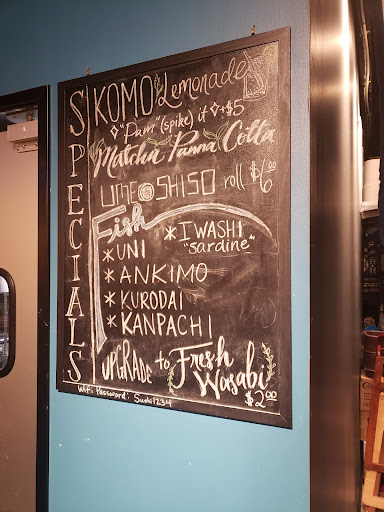 SPECIALS
KOMO Lemonade
"Pam" (spike) it +$5
Matcha Panna Cotta
UME SHISO roll $6.00
Fish
* IWASHI
"sardine"
* UNI
* ANKIMO
* KURODAI
* KANPACHI
UPGRADE to Fresh Wasabi
$2.00
Wifi Password: Sushi1234